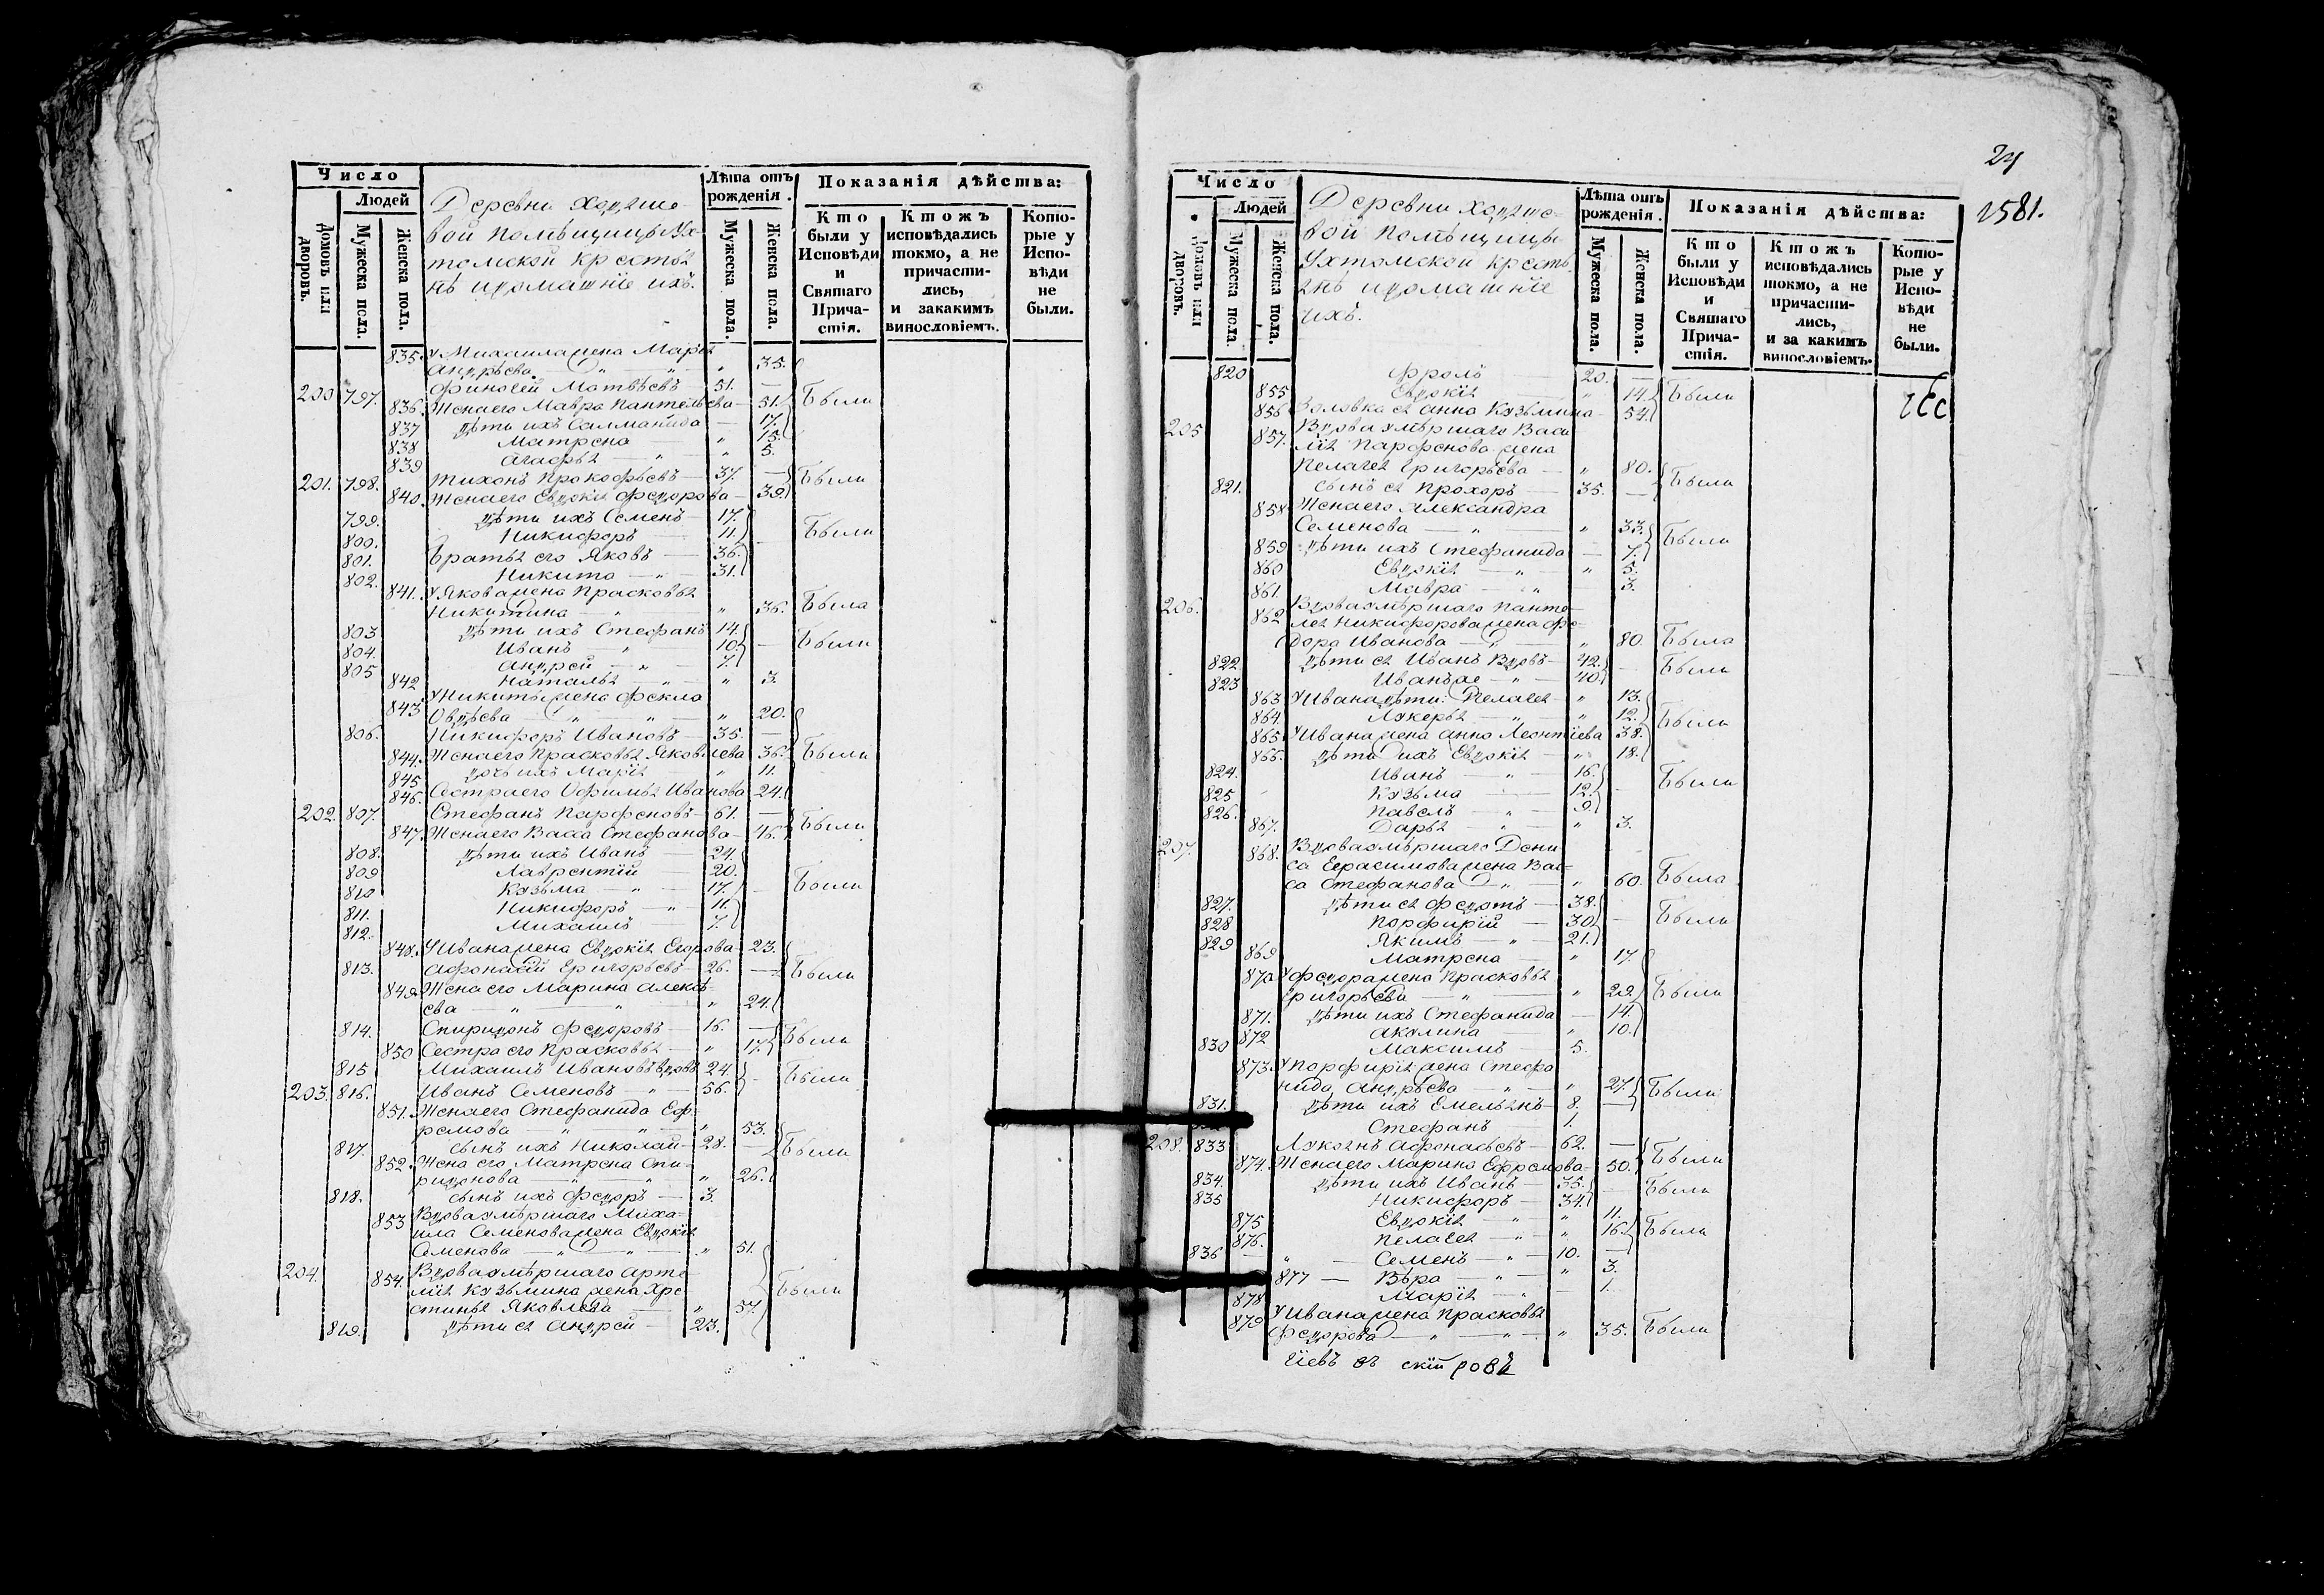 Число
Людей
Домовъ или дворовъ.
Мужеска пола.
Женска пола.
Деревни Ходяше-
вой помѣщицы Ух-
томской крестья
нѣ идомашніе ихъ.
Лѣта отъ рожденія.
Мужеска пола.
Женска пола.
Показанія дѣйства:
Кто были у Исповѣди и Святаго Причастія.
Ктожъ исповѣдались токмо, а не причастились, и закакимъ винословіемъ.
Которые у Исповѣди не были.
835. У Михаила жена Марья
Андрѣева " " " 35.
200 797. Финогей Матвѣевъ 51. —
836. Жена его Мавра Пантелѣева 51. Были
837 дѣти ихъ Саломанида — 17.
838 Матрена " 15.
839 Агафья " " 5.
201. 798. Тихонъ Прокофьевъ 37. — Были
840. Жена его Евдокія Федорова 39.
799. дѣти ихъ Семенъ 17.
800. Никифоръ 11. Были
801. Братья его Яковъ 36.
802. Никита " 31.
841. У Якова жена Прасковья
Никитина " " 36. Была
803 дѣти ихъ Стефанъ 14.
804. Иванъ " 10. Были
805 Андрей " 7.
842 Наталья " " 3.
843 У Никиты жена Фекла
Овдѣева " " " 20.
806. Никифоръ Ивановъ 35. —
844. Жена его Прасковья Яковлева 36. Были
845 дочь ихъ Марія " 11.
846. Сестра его Офимья Иванова 24.
202. 807. Стефанъ Парфеновъ 61. —
847. Жена его Васса Стефанова 46. Были
808. дѣти ихъ Иванъ 24.
809 Лаврентій 20.
810 Козьма " 17. Были
811. Никифоръ " 11.
812. Михаилъ 7.
848. У Ивана жена Евдокія Егорова 23.
813. Афонасій Григорьевъ 26. — Были
849. Жена его Марина Алексѣ-
ева " " 24.
814. Спиридонъ Федоровъ 16. —
850 Сестра его Прасковья " 17. Были
815 Михаилъ Ивановъ вдовъ 24
203. 816. Иванъ Семеновъ " 56. Были
851. Жена его Стефанида Еф-
ремова " " " 53.
817. сынъ ихъ Николай 28. — Были
852. Жена его Матрена Спи-
ридонова " " " 26.
818. сынъ ихъ Федоръ 3.
853 Вдова умѣршаго Миха-
ила Семенова жена Евдокія
Семенова " " " 51.
204. 854. Вдова умѣршаго Арте
мія Козьмина жена Хре
стинья Яковлева " 57. Были
819. дѣти ея Андрей 23.
24
1581.
Число
Людей
Домовъ или дворовъ.
Мужеска пола.
Женска пола.
Деревни Ходяше-
вой помѣщицы
Ухтомской кресть
янъ идомашніе
ихъ.
Лѣта отъ рожденія.
Мужеска пола.
Женска пола.
Показанія дѣйства:
Кто были у Исповѣди и Святаго Причастія.
Ктожъ исповѣдались токмо, а не причастились, и за какимъ винословіемъ.
Которые у Исповѣди не были.
820 Фролъ 20. —
855 Евдокія " 14. Были
856 Золовка ея Анна Козьмина 54.
205 857. Вдова умѣршаго Васи
лія Парфенова жена
Пелагея Григорьева " 80.
821. сынъ ея Прохоръ 35. — Были
858 Жена его Александра
Семенова " " 33.
859 дѣти ихъ Стефанида — 7. Были
860 Евдокія " " 5.
861. Мавра " 3.
206. 862 Вдова умѣршаго Панте-
лея Никифорова жена Фе-
дора Иванова " " 80. Была
822 дѣти ея Иванъ вдовъ 42. Были
823 Иванъ же " 40.
863 У Ивана дѣти: Пелагея " 13.
864. Лукерья " " 12. Были
865 У Ивана жена Анна Леонтіева 38.
866. дѣти ихъ Евдокія " 18.
824. Иванъ " 16.
825 Козьма 12. Были
826. Павелъ " 9.
867. Дарья " " 3.
207. 868. Вдова умѣршаго Дени
са Герасимова жена Вас-
са Стефанова " " 60. Была
827. дѣти ея Федотъ 38.
828 Порфирій 30. Были
829 Якимъ " 21.
869 Матрена " 17.
870 У Федора жена Прасковья
Григорьева " " 29. Были
871. дѣти ихъ Стефанида — 14.
872 Акулина " 10.
830 Максимъ 5.
873 У Порфирія жена Стефа
нида Андрѣева " " 27. Были
831. дѣти ихъ Емельянъ 8. —
Стефанъ 1.
208. 833 Лукоянъ Афонасьевъ 62. —
874. Жена его Марина Ефремова 50. Были
834. дѣти ихъ Иванъ 35.
835 Никифоръ 34. Были
875 Евдокія " " 11.
876. Пелагея " " 16. Были
836 " — Семенъ " 10. —
877 — Вѣра " " 3.
878 Марія " — 1.
879 У Ивана жена Прасковья
Федорова " " " 35. Были